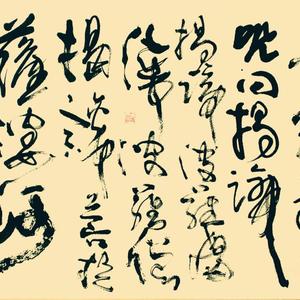 呪曰揭諦
揭諦波羅揭
諦波羅僧
揭諦菩提
薩婆訶